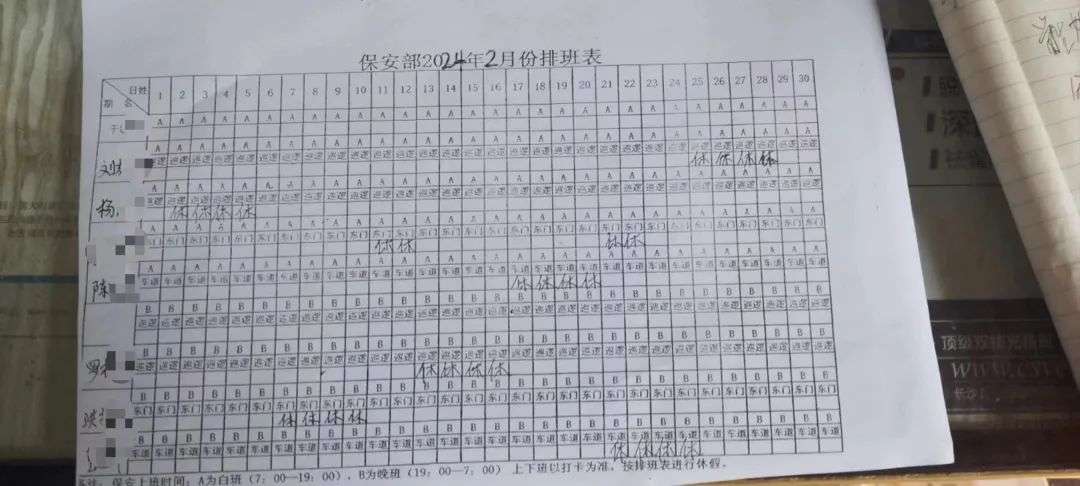 保安部2024年2月份排班表
日 姓 期 名 1 2 3 4 5 6 7 8 9 10 11 12 13 14 15 16 17 18 19 20 21 22 23 24 25 26 27 28 29 30
于 A A A A A A A A A A A A A A A A A A A A A A A A A A A A A A
刘 巡逻 巡逻 巡逻 巡逻 巡逻 巡逻 巡逻 巡逻 巡逻 巡逻 巡逻 巡逻 巡逻 巡逻 巡逻 巡逻 巡逻 巡逻 巡逻 巡逻 巡逻 巡逻 巡逻 巡逻 巡逻 巡逻 巡逻 巡逻 巡逻 巡逻
休 休 休 休
A A A A A A A A A A A A A A A A A A A A A A A A A A A A A A
杨 巡逻 巡逻 巡逻 巡逻 巡逻 巡逻 巡逻 巡逻 巡逻 巡逻 巡逻 巡逻 巡逻 巡逻 巡逻 巡逻 巡逻 巡逻 巡逻 巡逻 巡逻 巡逻 巡逻 巡逻 巡逻 巡逻 巡逻 巡逻 巡逻 巡逻
休 休 休 休
A A A A A A A A A A A A A A A A A A A A A A A A A A A A A A
东门 东门 东门 东门 东门 东门 东门 东门 东门 东门 东门 东门 东门 东门 东门 东门 东门 东门 东门 东门 东门 东门 东门 东门 东门 东门 东门 东门 东门 东门
休 休 休 休
A A A A A A A A A A A A A A A A A A A A A A A A A A A A A A
陈 车道 车道 车道 车道 车道 车道 车道 车道 车道 车道 车道 车道 车道 车道 车道 车道 车道 车道 车道 车道 车道 车道 车道 车道 车道 车道 车道 车道 车道 车道
休 休 休 休
B B B B B B B B B B B B B B B B B B B B B B B B B B B B B B
巡逻 巡逻 巡逻 巡逻 巡逻 巡逻 巡逻 巡逻 巡逻 巡逻 巡逻 巡逻 巡逻 巡逻 巡逻 巡逻 巡逻 巡逻 巡逻 巡逻 巡逻 巡逻 巡逻 巡逻 巡逻 巡逻 巡逻 巡逻 巡逻 巡逻
B B B B B B B B B B B B B B B B B B B B B B B B B B B B B B
罗 巡逻 巡逻 巡逻 巡逻 巡逻 巡逻 巡逻 巡逻 巡逻 巡逻 巡逻 巡逻 巡逻 巡逻 巡逻 巡逻 巡逻 巡逻 巡逻 巡逻 巡逻 巡逻 巡逻 巡逻 巡逻 巡逻 巡逻 巡逻 巡逻 巡逻
休 休 休 休
B B B B B B B B B B B B B B B B B B B B B B B B B B B B B B
东门 东门 东门 东门 东门 东门 东门 东门 东门 东门 东门 东门 东门 东门 东门 东门 东门 东门 东门 东门 东门 东门 东门 东门 东门 东门 东门 东门 东门 东门
休 休 休 休
B B B B B B B B B B B B B B B B B B B B B B B B B B B B B B
车道 车道 车道 车道 车道 车道 车道 车道 车道 车道 车道 车道 车道 车道 车道 车道 车道 车道 车道 车道 车道 车道 车道 车道 车道 车道 车道 车道 车道 车道
休 休 休 休
备注：保安上班时间：A为白班（7：00—19：00），B为晚班（19：00—7：00） 上下班以打卡为准，按排班表进行休假。